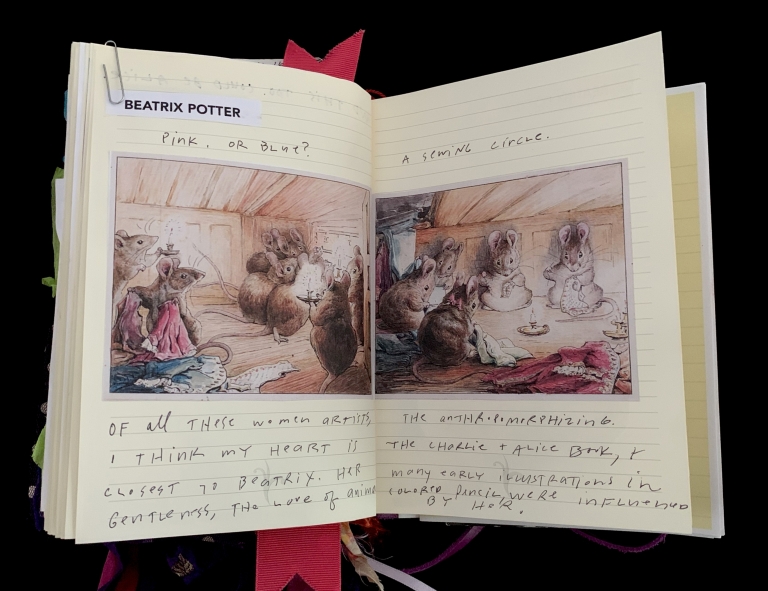 BEATRIX POTTER
Pink. OR Blue?
OF all THese women ARTISTS,
I THINK my HEART is
closest TO Beatrix. HeR
Gentleness, THe Love of
A Sewing circle.
THe anTHROPOMORPHIZING.
THe CHARLIE + ALICE Book, &
many early illustrations in
COLORED Pencil, were influenced
BY HeR.